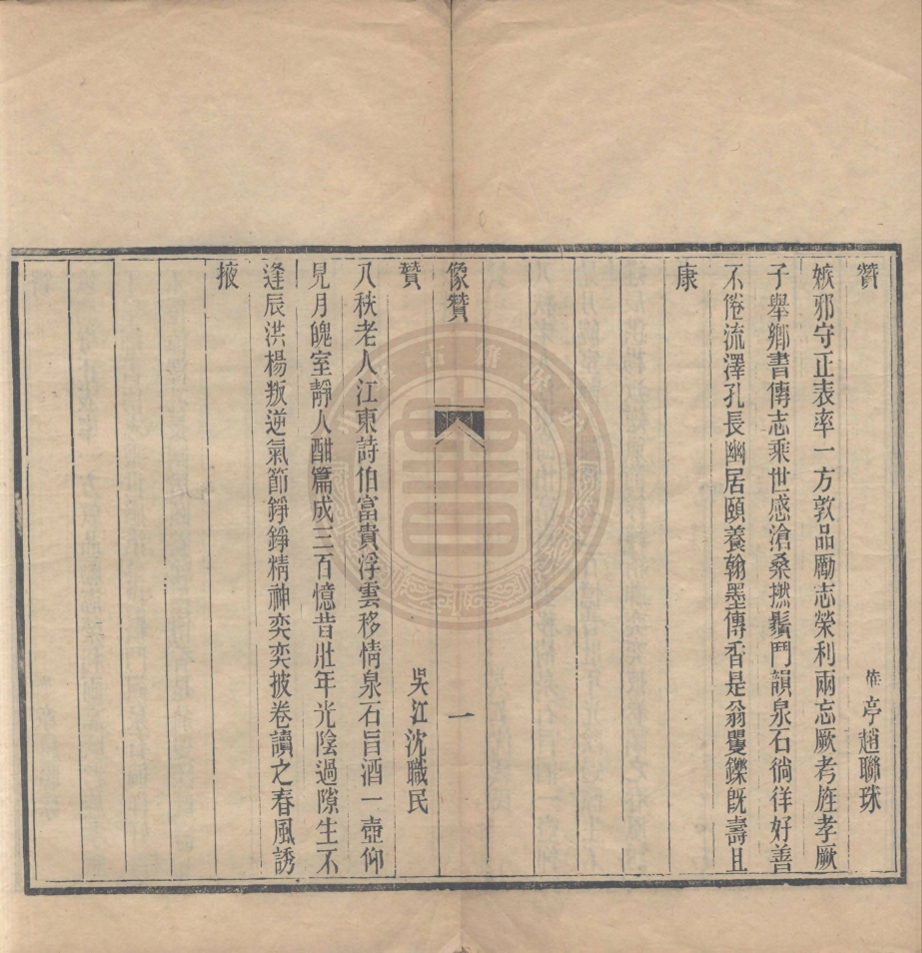 贊
華亭趙聯珠
嫉邪守正表率一方敦品勵志榮利兩忘厥考旌孝厥
子舉鄉書傳志乘世感滄桑撚鬚鬥韻泉石徜徉好善
不倦流澤孔長幽居頤養翰墨傳香是翁矍鑠既壽且
康
像贊
一
贊
吳江沈職民
八秩老人江東詩伯富貴浮雲移情泉石旨酒一壺仰
見月魄室靜人酣篇成三百憶昔壯年光陰過隙生不
逢辰洪楊叛逆氣節錚錚精神奕奕披卷讀之春風誘
掖